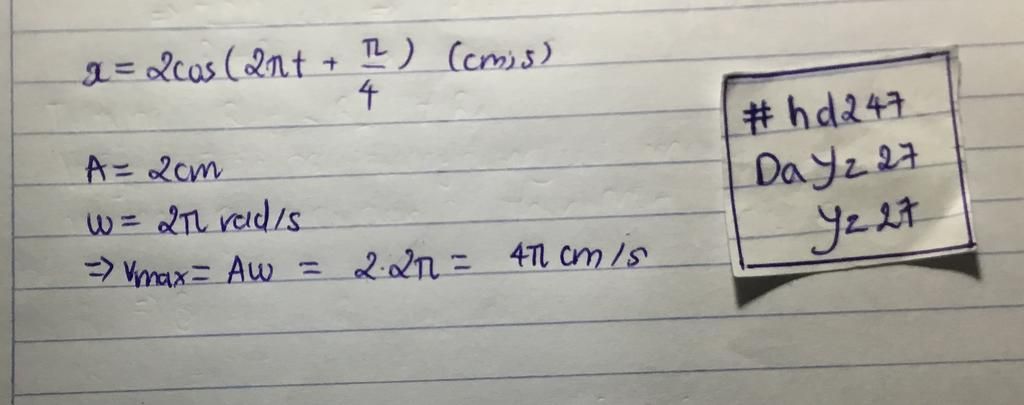 x = 2cos(2πt + π/4) (cm; s)
A = 2cm
w = 2π rad/s
=> Vmax = Aw = 2.2π = 4π cm/s
#hd247
Dayz27
yz27